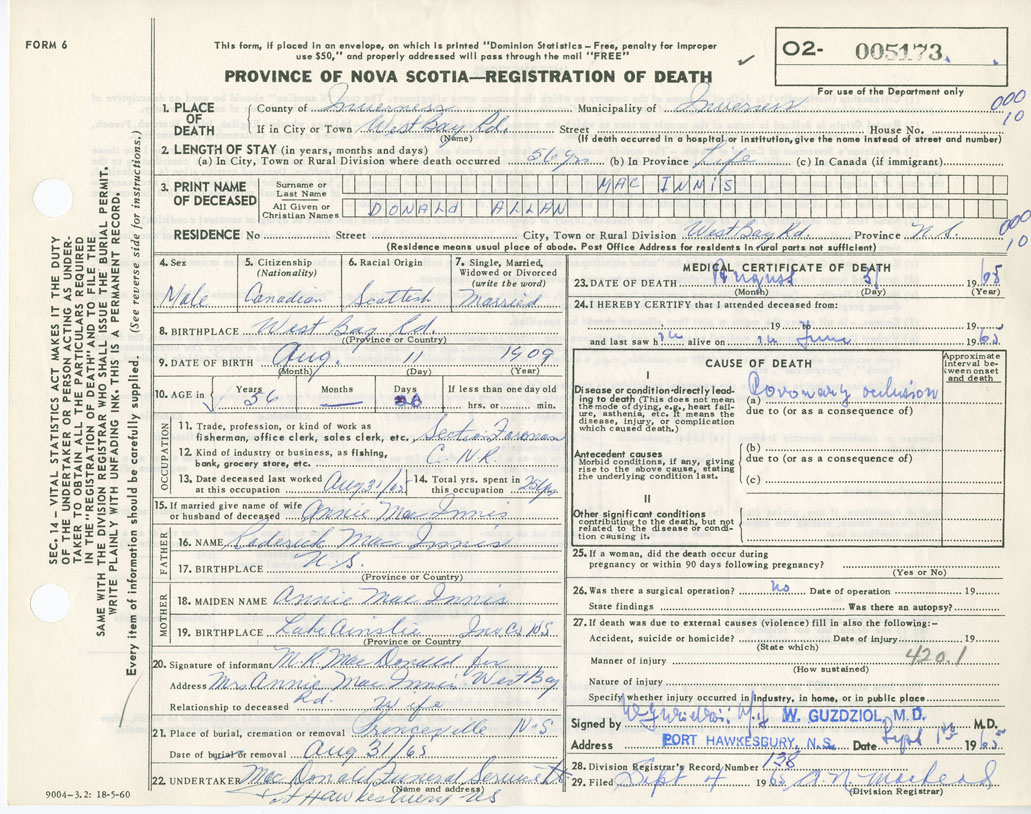 FORM 6
This form, if placed in an envelope, on which is printed "Dominion Statistics – Free, penalty for improper
use $50," and properly addressed will pass through the mail "FREE"
PROVINCE OF NOVA SCOTIA—REGISTRATION OF DEATH
O2- 005173
For use of the Department only
000
10
1. PLACE OF DEATH
County of Inverness Municipality of Inverness
If in City or Town West Bay Rd. Street House No.
(Name) (If death occurred in a hospital or institution, give the name instead of street and number)
2. LENGTH OF STAY (in years, months and days)
(a) In City, Town or Rural Division where death occurred 56 yrs (b) In Province Life (c) In Canada (if immigrant)
3. PRINT NAME OF DECEASED
Surname or Last Name MAC INNIS
All Given or Christian Names DONALd ALLAN
000
10
RESIDENCE No Street City, Town or Rural Division West Bay Rd Province N.S.
(Residence means usual place of abode. Post Office Address for residents in rural parts not sufficient)
SEC. 14 – VITAL STATISTICS ACT MAKES IT THE DUTY
OF THE UNDERTAKER OR PERSON ACTING AS UNDER-
TAKER TO OBTAIN ALL THE PARTICULARS REQUIRED
IN THE "REGISTRATION OF DEATH" AND TO FILE THE
SAME WITH THE DIVISION REGISTRAR WHO SHALL ISSUE THE BURIAL PERMIT.
WRITE PLAINLY WITH UNFADING INK. THIS IS A PERMANENT RECORD.
Every item of information should be carefully supplied. (See reverse side for instructions.)
4. Sex
Male
5. Citizenship
(Nationality)
Canadian
6. Racial Origin
Scottish
7. Single, Married,
Widowed or Divorced
(write the word)
Married
8. BIRTHPLACE West Bay Rd.
(Province or Country)
9. DATE OF BIRTH Aug. 11 1909
(Month) (Day) (Year)
10. AGE in Years 56 Months — Days 20 If less than one day old
hrs. or min.
OCCUPATION
11. Trade, profession, or kind of work as
fisherman, office clerk, sales clerk, etc. Section Foreman
12. Kind of industry or business, as fishing,
bank, grocery store, etc. C.N.R.
13. Date deceased last worked
at this occupation Aug 31/65
14. Total yrs. spent in
this occupation 25 yrs.
15. If married give name of wife
or husband of deceased Annie Mac Innis
FATHER
16. NAME Roderick Mac Innis
17. BIRTHPLACE N.S.
(Province or Country)
MOTHER
18. MAIDEN NAME Annie Mac Innis
19. BIRTHPLACE Lake Ainslie Inv Co NS
(Province or Country)
20. Signature of informant M.R. MacDonald for
Address Mrs Annie Mac Innis West Bay
Rd.
Relationship to deceased Wife
21. Place of burial, cremation or removal Princeville N.S
Date of burial or removal Aug 31/65
22. UNDERTAKER MacDonald Funeral Service
(Name and address)
Pt Hawkesbury NS
9004–3.2: 18-5-60
MEDICAL CERTIFICATE OF DEATH
23. DATE OF DEATH August 31 1965
(Month) (Day) (Year)
24. I HEREBY CERTIFY that I attended deceased from:
19 to 19
and last saw him alive on in June 1965
CAUSE OF DEATH
Approximate interval between onset and death
I
Disease or condition directly lead-
ing to death (This does not mean
the mode of dying, e.g., heart fail-
ure, asthenia, etc. It means the
disease, injury, or complication
which caused death.)
(a) Coronary occlusion
due to (or as a consequence of)
Antecedent causes
Morbid conditions, if any, giving
rise to the above cause, stating
the underlying condition last.
(b)
due to (or as a consequence of)
(c)
II
Other significant conditions
contributing to the death, but not
related to the disease or condi-
tion causing it.
25. If a woman, did the death occur during
pregnancy or within 90 days following pregnancy?
(Yes or No)
26. Was there a surgical operation? No Date of operation 19
State findings Was there an autopsy?
27. If death was due to external causes (violence) fill in also the following:–
Accident, suicide or homicide? Date of injury 19
(State which)
Manner of injury 420.1
(How sustained)
Nature of injury
Specify whether injury occurred in industry, in home, or in public place
Signed by W. GUZDZIOL, M.D. M.D.
Address PORT HAWKESBURY, N.S. Date Sept 1st 1965
28. Division Registrar's Record Number 128
29. Filed Sept 4 1965
(Division Registrar)